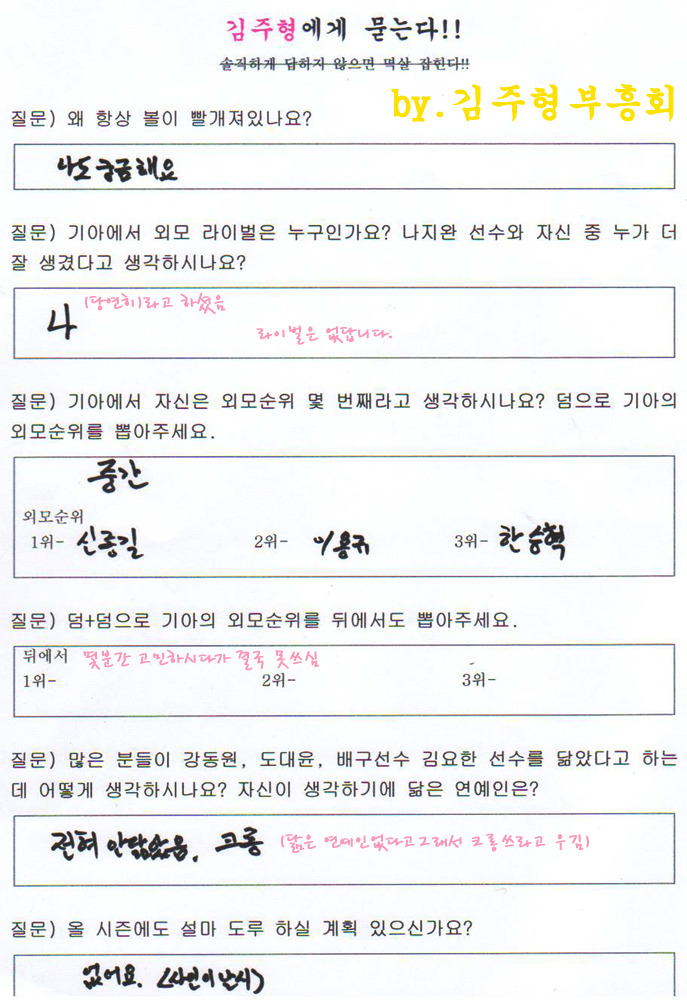 김주형에게 묻는다!!
솔직하게 답하지 않으면 멱살 잡힌다!!
by.김주형부흥회
질문) 왜 항상 볼이 빨개져있나요?
나도 궁금해요
질문) 기아에서 외모 라이벌은 누구인가요? 나지완 선수와 자신 중 누가 더
잘 생겼다고 생각하시나요?
나 (당연히)라고 하셨음
라이벌은 없답니다.
질문) 기아에서 자신은 외모순위 몇 번째라고 생각하시나요? 덤으로 기아의
외모순위를 뽑아주세요.
중간
외모순위
1위- 신종길 2위- 이용규 3위- 한승혁
질문) 덤+덤으로 기아의 외모순위를 뒤에서도 뽑아주세요.
뒤에서 몇분간 고민하시다가 결국 못쓰심
1위- 2위- 3위-
질문) 많은 분들이 강동원, 도대윤, 배구선수 김요한 선수를 닮았다고 하는
데 어떻게 생각하시나요? 자신이 생각하기에 닮은 연예인은?
전혀 안닮았음, 크롱 (닮은 연예인없다고그래서 크롱쓰라고 우김)
질문) 올 시즌에도 설마 도루 하실 계획 있으신가요?
없어요. (사인이 난시)